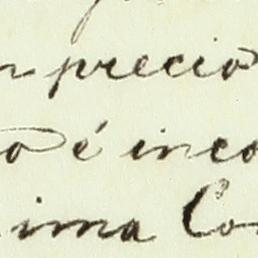 n precio
o é inco
ima Co